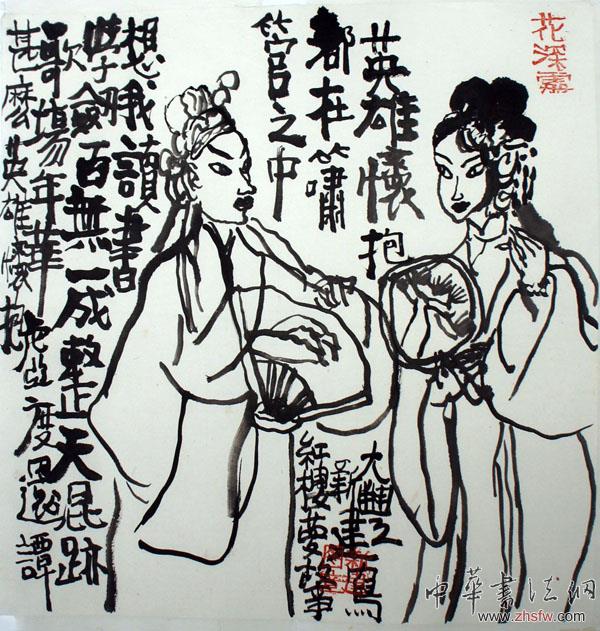 花深
英雄懷抱
都在簫
管之中
想我讀書
學劍百無一成整天混跡
歌場年華虛度還譚
甚麼英雄懷抱
大豐
新建寫
紅樓夢故事
中華書法網
www.zhsfw.com